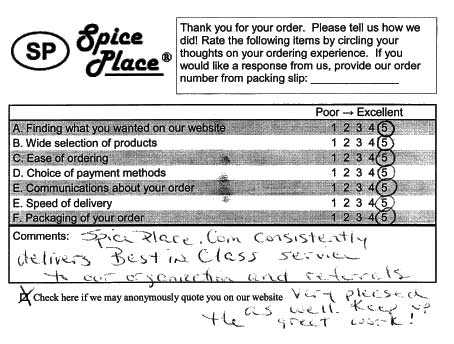 SP Spice Place®
Thank you for your order. Please tell us how we
did! Rate the following items by circling your
thoughts on your ordering experience. If you
would like a response from us, provide our order
number from packing slip:
Poor → Excellent
A. Finding what you wanted on our website 1 2 3 4 5
B. Wide selection of products 1 2 3 4 5
C. Ease of ordering 1 2 3 4 5
D. Choice of payment methods 1 2 3 4 5
E. Communications about your order 1 2 3 4 5
E. Speed of delivery 1 2 3 4 5
F. Packaging of your order 1 2 3 4 5
Comments: SpicePlace.Com consistently
delivers Best in Class service
to our organization and referrals
Check here if we may anonymously quote you on our website Very pleased
as well. Keep up
the great work!